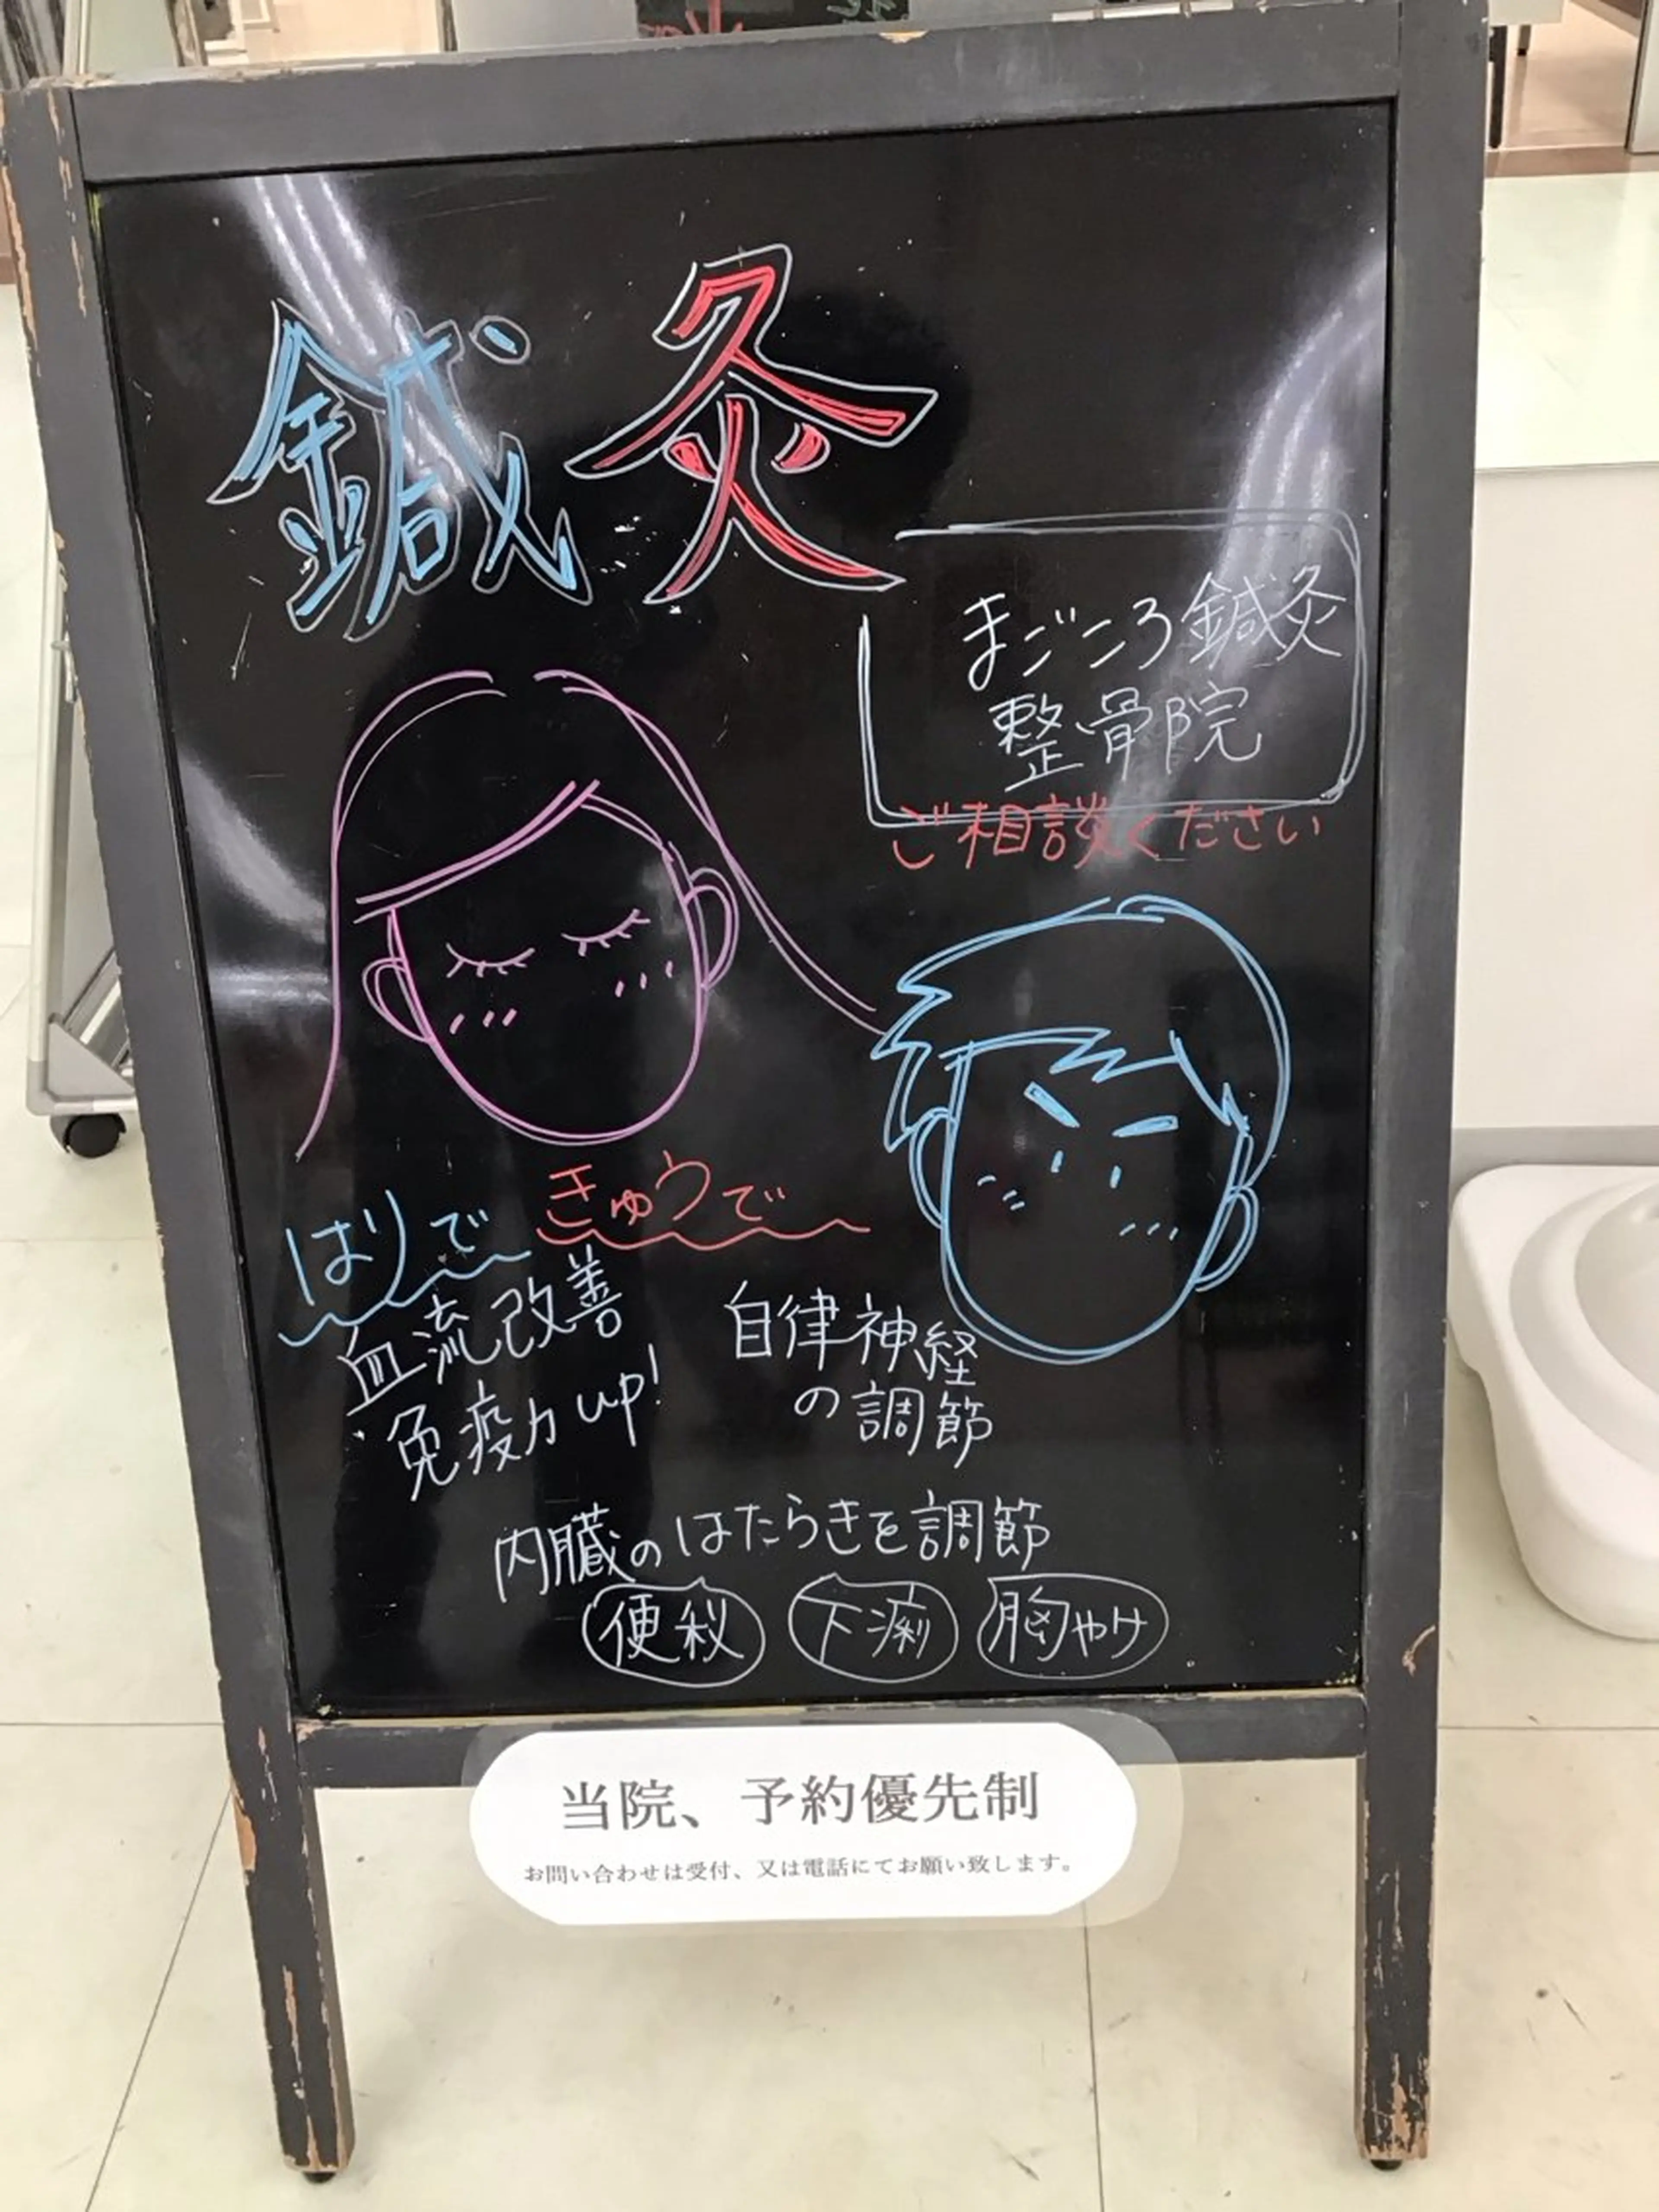 鍼灸
まごころ鍼灸
整骨院
ご相談ください
はりで きゅうで
血流改善
免疫力up!
自律神経
の調節
内臓のはたらきを調節
便秘 下痢 胸やけ
当院、予約優先制
お問い合わせは受付、又は電話にてお願い致します。